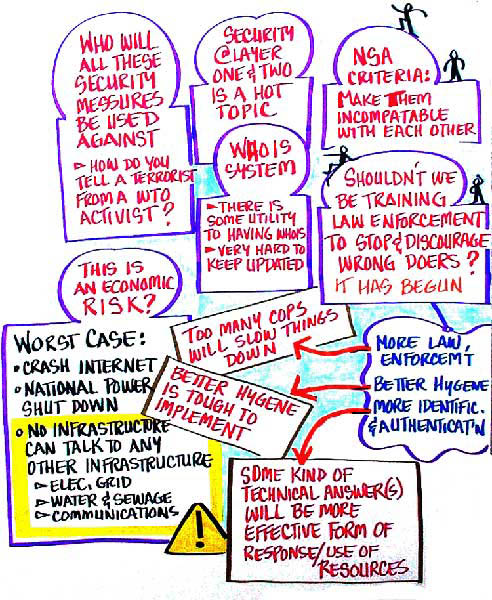 WHO WILL
ALL THESE
SECURITY
MESSURES
BE USED
AGAINST
► HOW DO YOU
TELL A TERRORIST
FROM A WTO
ACTIVIST?
SECURITY
@LAYER
ONE & TWO
IS A HOT
TOPIC
NSA
CRITERIA:
MAKE THEM
INCOMPATABLE
WITH EACH OTHER
WHOIS
SYSTEM
► THERE IS
SOME UTILITY
TO HAVING WHOIS
► VERY HARD TO
KEEP UPDATED
SHOULDN'T WE
BE TRAINING
LAW ENFORCEMENT
TO STOP & DISCOURAGE
WRONG DOERS?
IT HAS BEGUN
THIS IS
AN ECONOMIC
RISK?
WORST CASE:
• CRASH INTERNET
• NATIONAL POWER
SHUT DOWN
• NO INFRASTRUCTURE
CAN TALK TO ANY
OTHER INFRASTRUCTURE
► ELEC. GRID
► WATER & SEWAGE
► COMMUNICATIONS
!
TOO MANY COPS
WILL SLOW THINGS
DOWN
BETTER HYGENE
IS TOUGH TO
IMPLEMENT
MORE LAW,
ENFORCEMT
BETTER HYGENE
MORE IDENTIFIC.
& AUTHENTICAT'N
SOME KIND OF
TECHNICAL ANSWER(S)
WILL BE MORE
EFFECTIVE FORM OF
RESPONSE/USE OF
RESOURCES